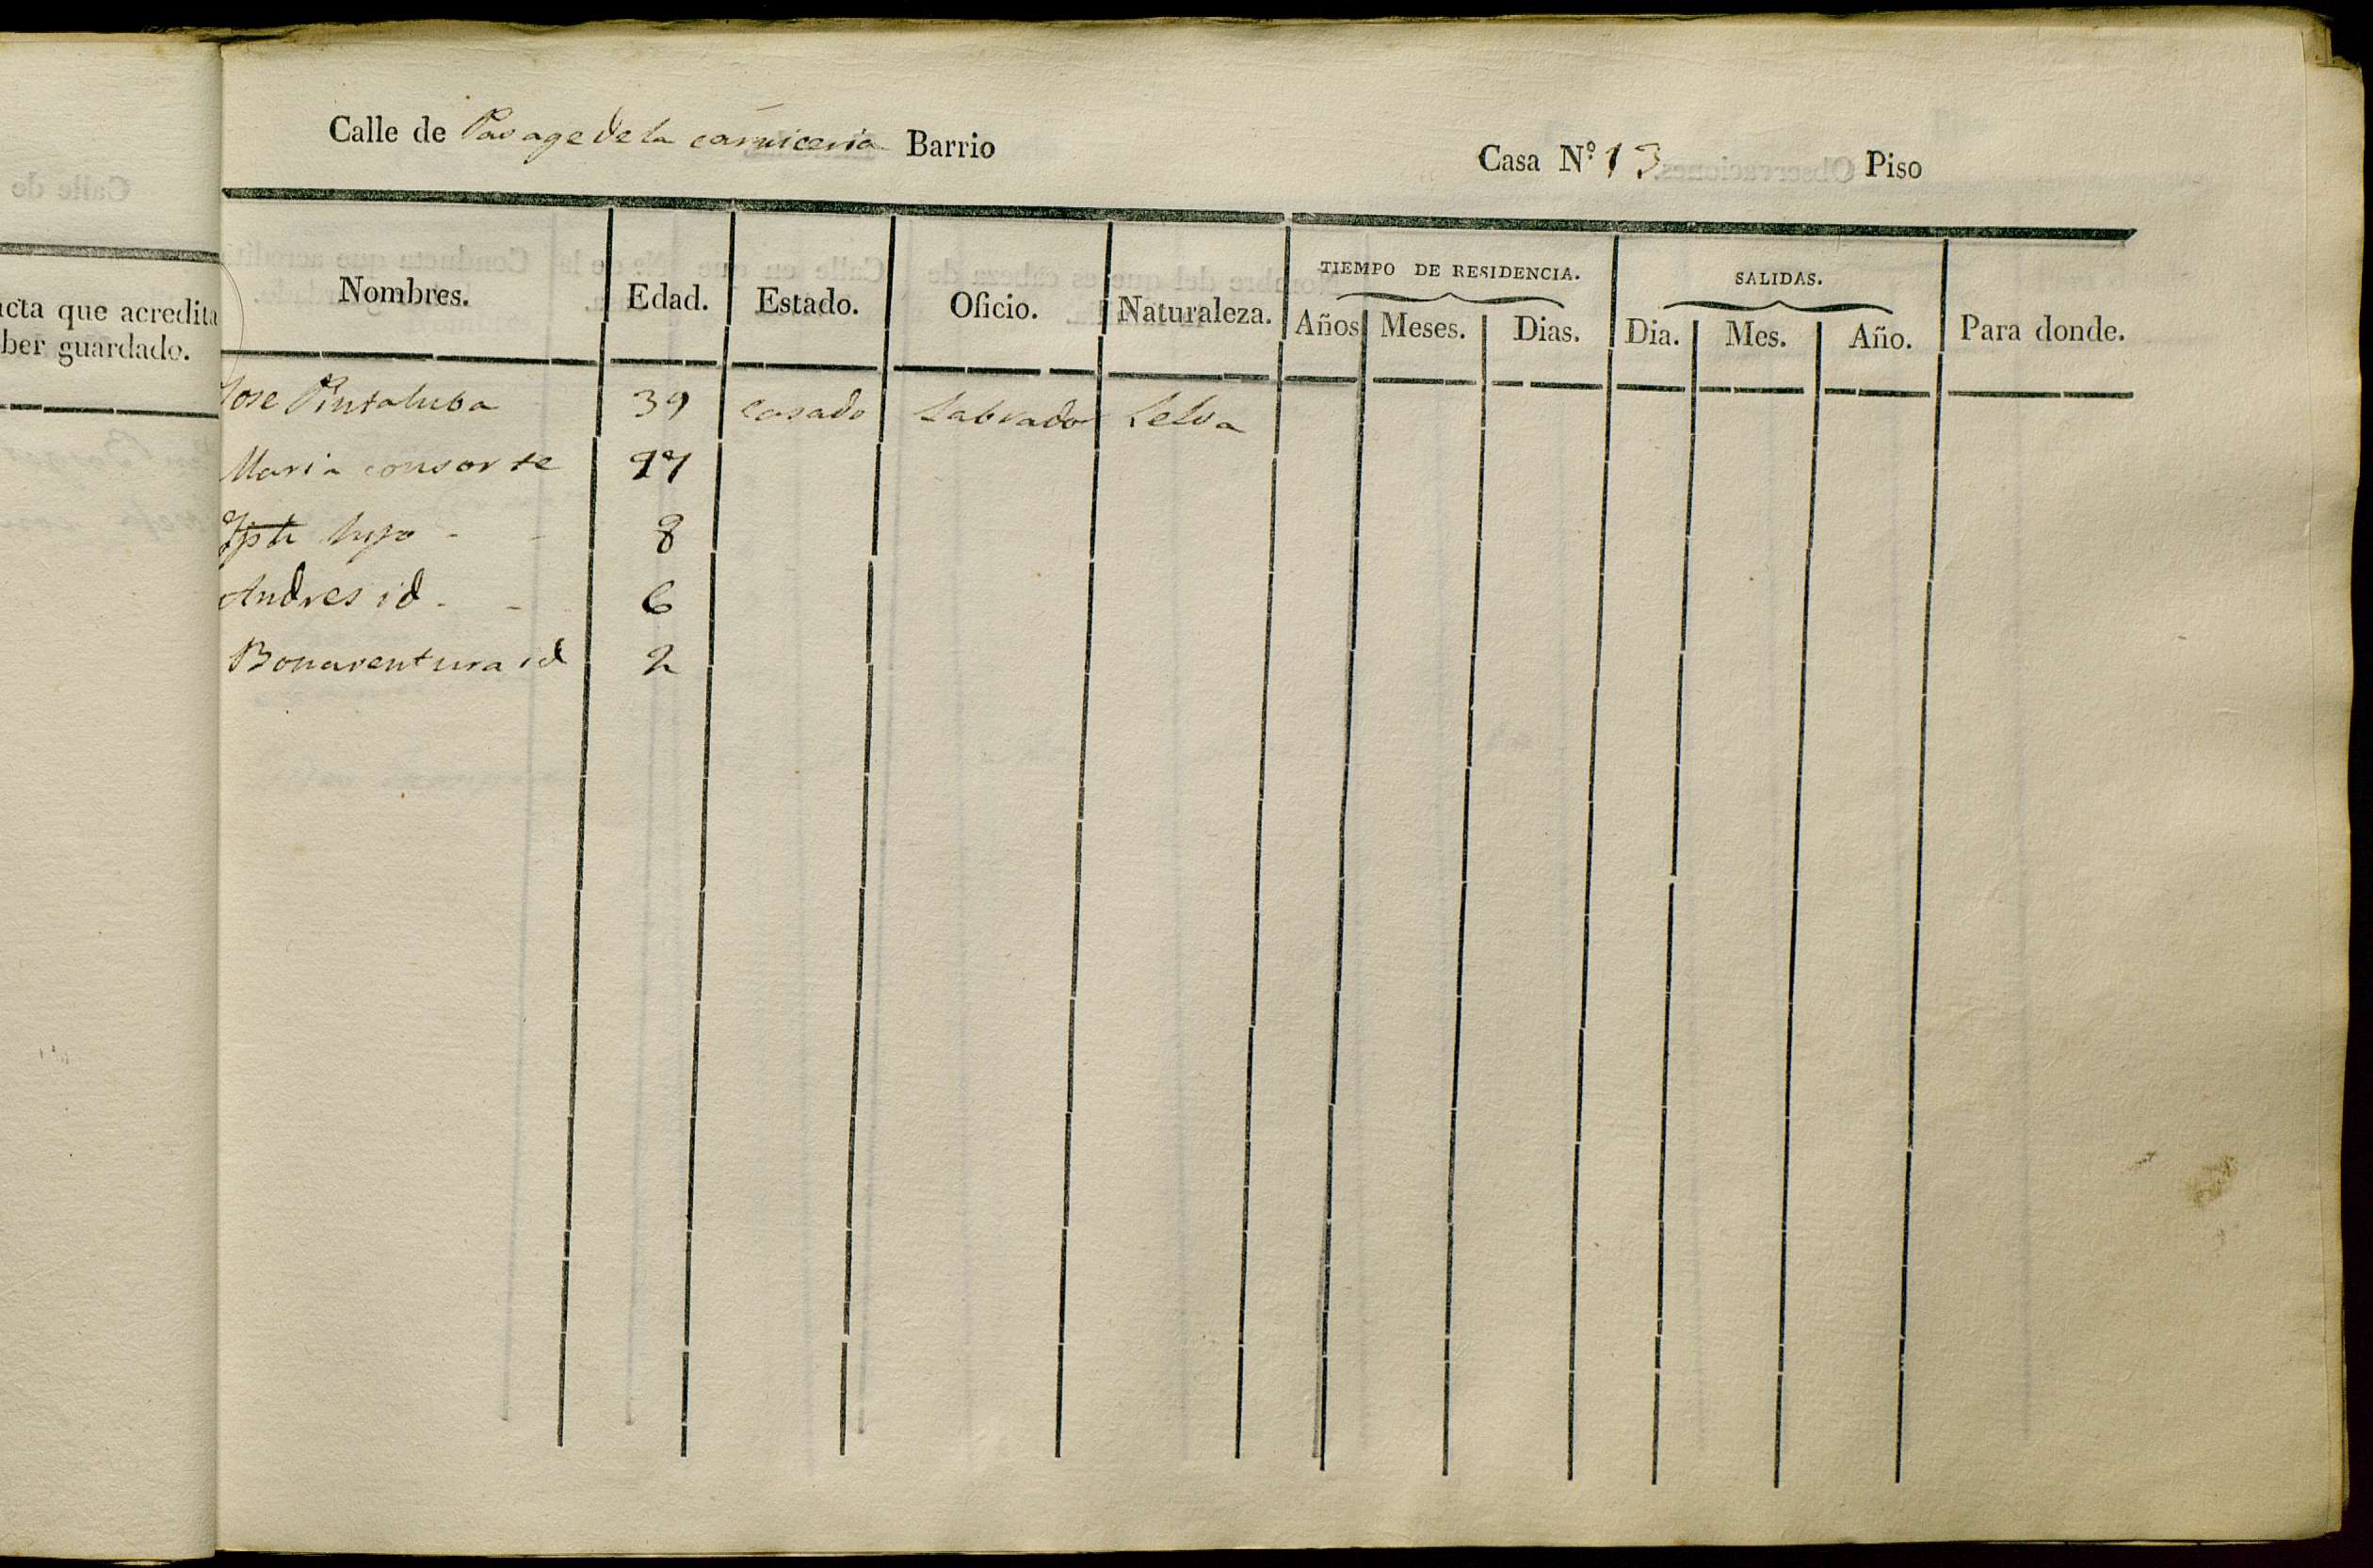 Calle de Pasage de la carniceria Barrio Casa N.º 13 Piso
acta que acredita
ber guardado.
Nombres. Edad. Estado. Oficio. Naturaleza. TIEMPO DE RESIDENCIA. SALIDAS. Para donde.
Años Meses. Dias. Dia. Mes. Año.
Jose Pintaluba 39 casado Labrador Selva
Maria consorte
Jph hijo - - 8
Andres id - - 6
Bonaventura id 2